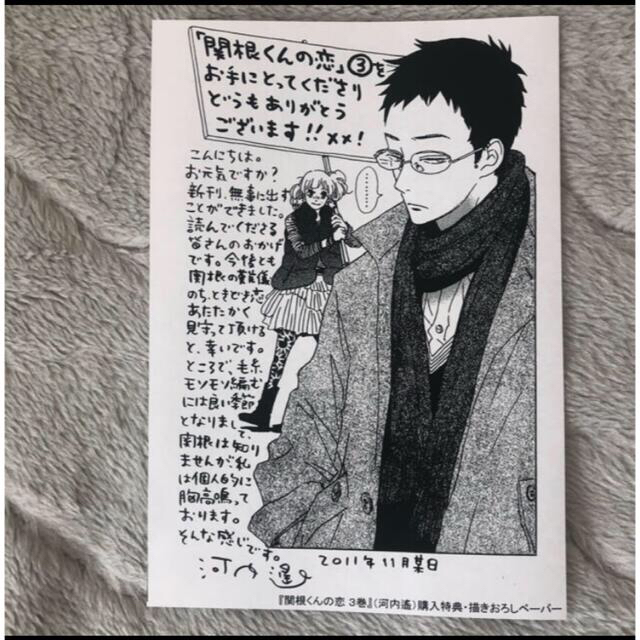 「関根くんの恋」③を
お手にとってくださり
どうもありがとう
ございます!!××!
こんにちは。
お元気ですか?
新刊、無事に出す
ことができました。
読んでくださる
皆さんのおかげ
です。今後とも
関根の難儀
のち、ときどき恋
あたたかく
見守って頂ける
と、幸いです。
ところで、毛糸
モソモソ編む
には良い季節
となりまして、
関根は知り
ませんが、私
は個人的に
胸高鳴って
おります。
そんな感じです。
河内遙
2011年11月某日
『関根くんの恋 3巻』(河内遙)購入特典・描きおろしペーパー